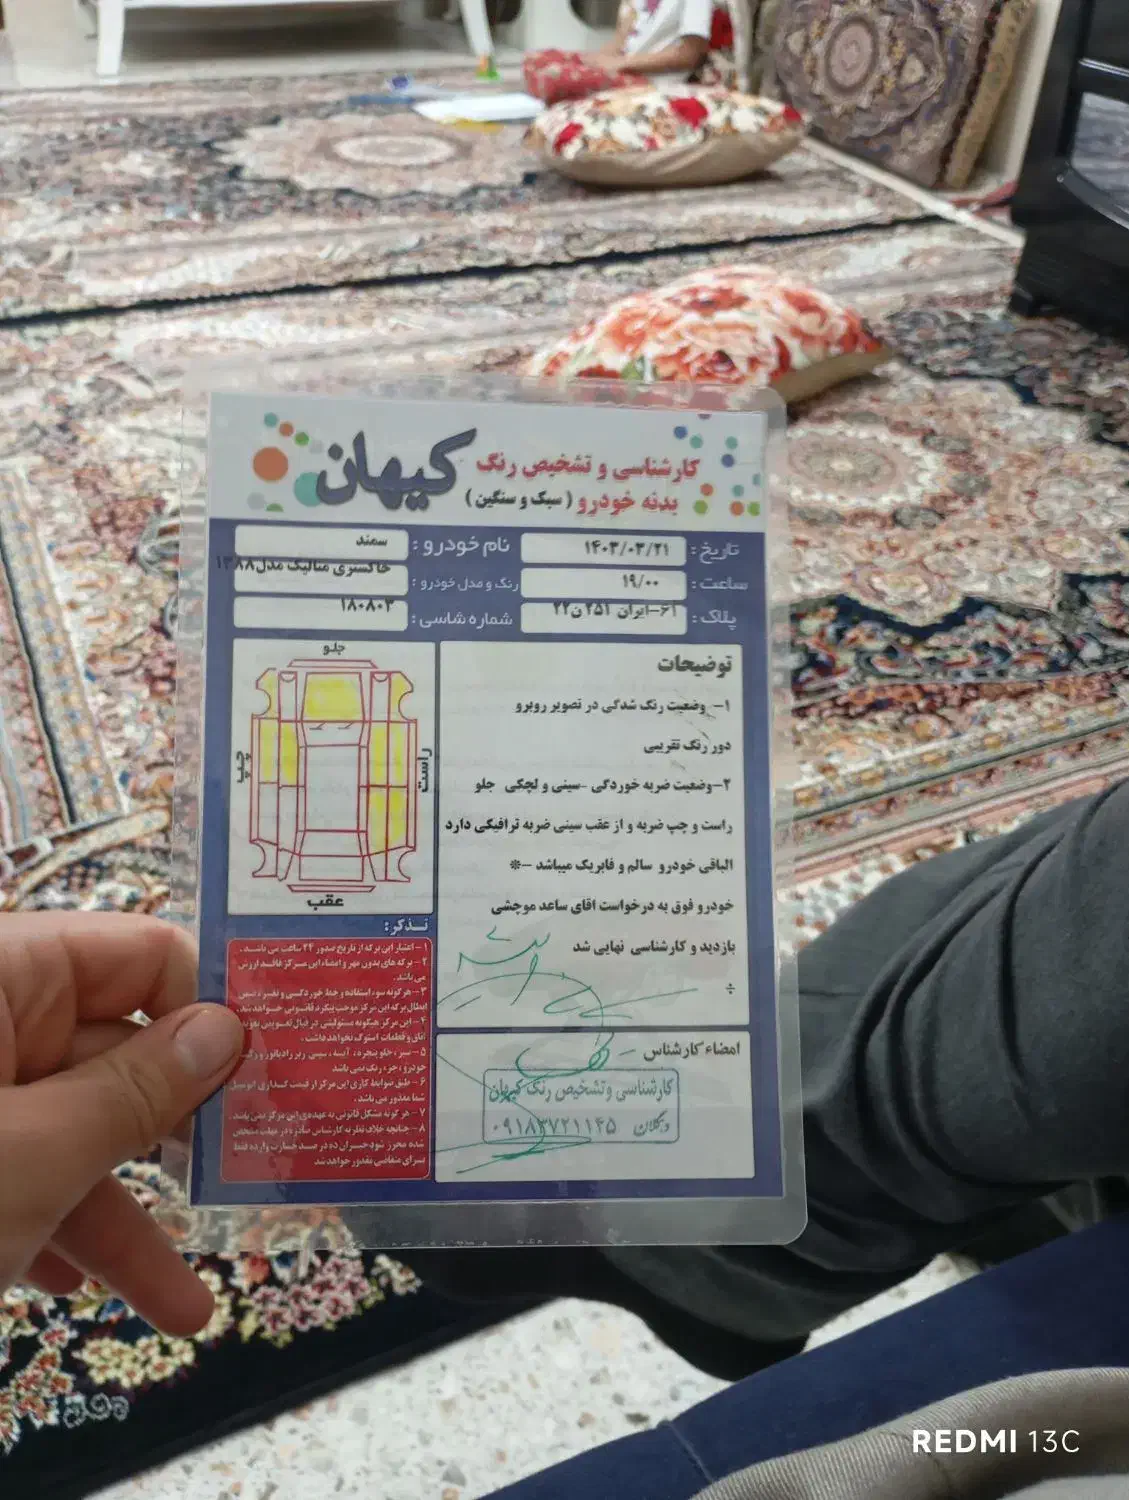 کارشناسی و تشخیص رنگ
بدنه خودرو (سبک و سنگین)
کیهان
تاریخ: ۱۴۰۳/۰۳/۲۱
نام خودرو: سمند
ساعت: ۱۹/۰۰
رنگ و مدل خودرو: خاکستری متالیک مدل۱۳۸۸
پلاک: ۶۱-ایران ۲۵۱ ن۲۲
شماره شاسی: ۱۸۰۸۰۳
جلو
چپ
راست
عقب
توضیحات
۱- وضعیت رنگ شدگی در تصویر روبرو
دور رنگ تقریبی
۲-وضعیت ضربه خوردگی -سینی و لچکی جلو
راست و چپ ضربه و از عقب سینی ضربه ترافیکی دارد
الباقی خودرو سالم و فابریک میباشد -*
خودرو فوق به درخواست اقای ساعد موچشی
بازدید و کارشناسی نهایی شد
÷
تذکر:
۱- اعتبار این برگه از تاریخ صدور ۲۴ ساعت می باشد.
۲- برگه های بدون مهر و امضاء این مرکز فاقد ارزش
می باشد.
۳- هرگونه سوء استفاده و خط خوردگی و تغییر، سبب
ابطال برگه این مرکز موجب پیگرد قانونی خواهد شد.
۴- این مرکز هیچگونه مسئولیتی در قبال تعویض
اتاق و قطعات استوک نخواهد داشت.
۵- سپر، جلو پنجره، آیینه، سینی زیر رادیاتور و رکاب
خودرو، جزء رنگ نمی باشد
۶- طبق ضوابط کاری این مرکز از قیمت گذاری اتومبیل
شما معذور می باشد.
۷- هرگونه مشکل قانونی به عهده ی این مرکز نمی باشد.
۸- چنانچه خلاف نظریه کارشناس صادره در مهلت مشخص
شده محرز شود جبران ده درصد خسارت وارده فقط
برای متقاضی مقدور خواهد شد
امضاء کارشناس
کارشناسی و تشخیص رنگ کیهان
دهگلان ۰۹۱۸۳۷۲۱۱۴۵
REDMI 13C